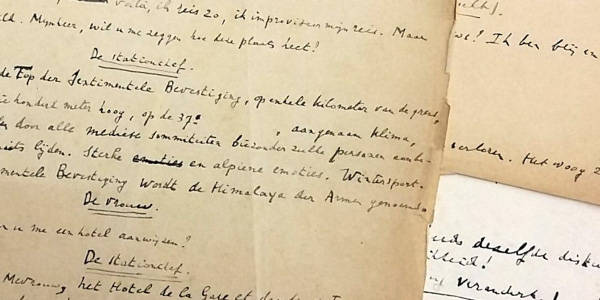 voilà, ik reis zo, ik improviseer mijn reis. Maar
Mijnheer, wil u me zeggen hoe deze plaats heet?
De stationchef.
de Top der Sentimentele Bevestiging, op enkele kilometer van de grens,
honderd meter hoog, op de 37e , aangenaam klima,
door alle mediese sommiteiten biezonder zulke personen aanbe-
niets lijden. Sterke emoties en alpiene emoties. Wintersport.
mentele Bevestiging wordt de Himalaya der Armen genoemd
De vrouw.
u me een hotel aanwijzen?
De stationchef.
Mevrouw, het Hotel de la Gare et des
! Ik ben blij en
verloren. Het woog
dezelfde
veranderd!